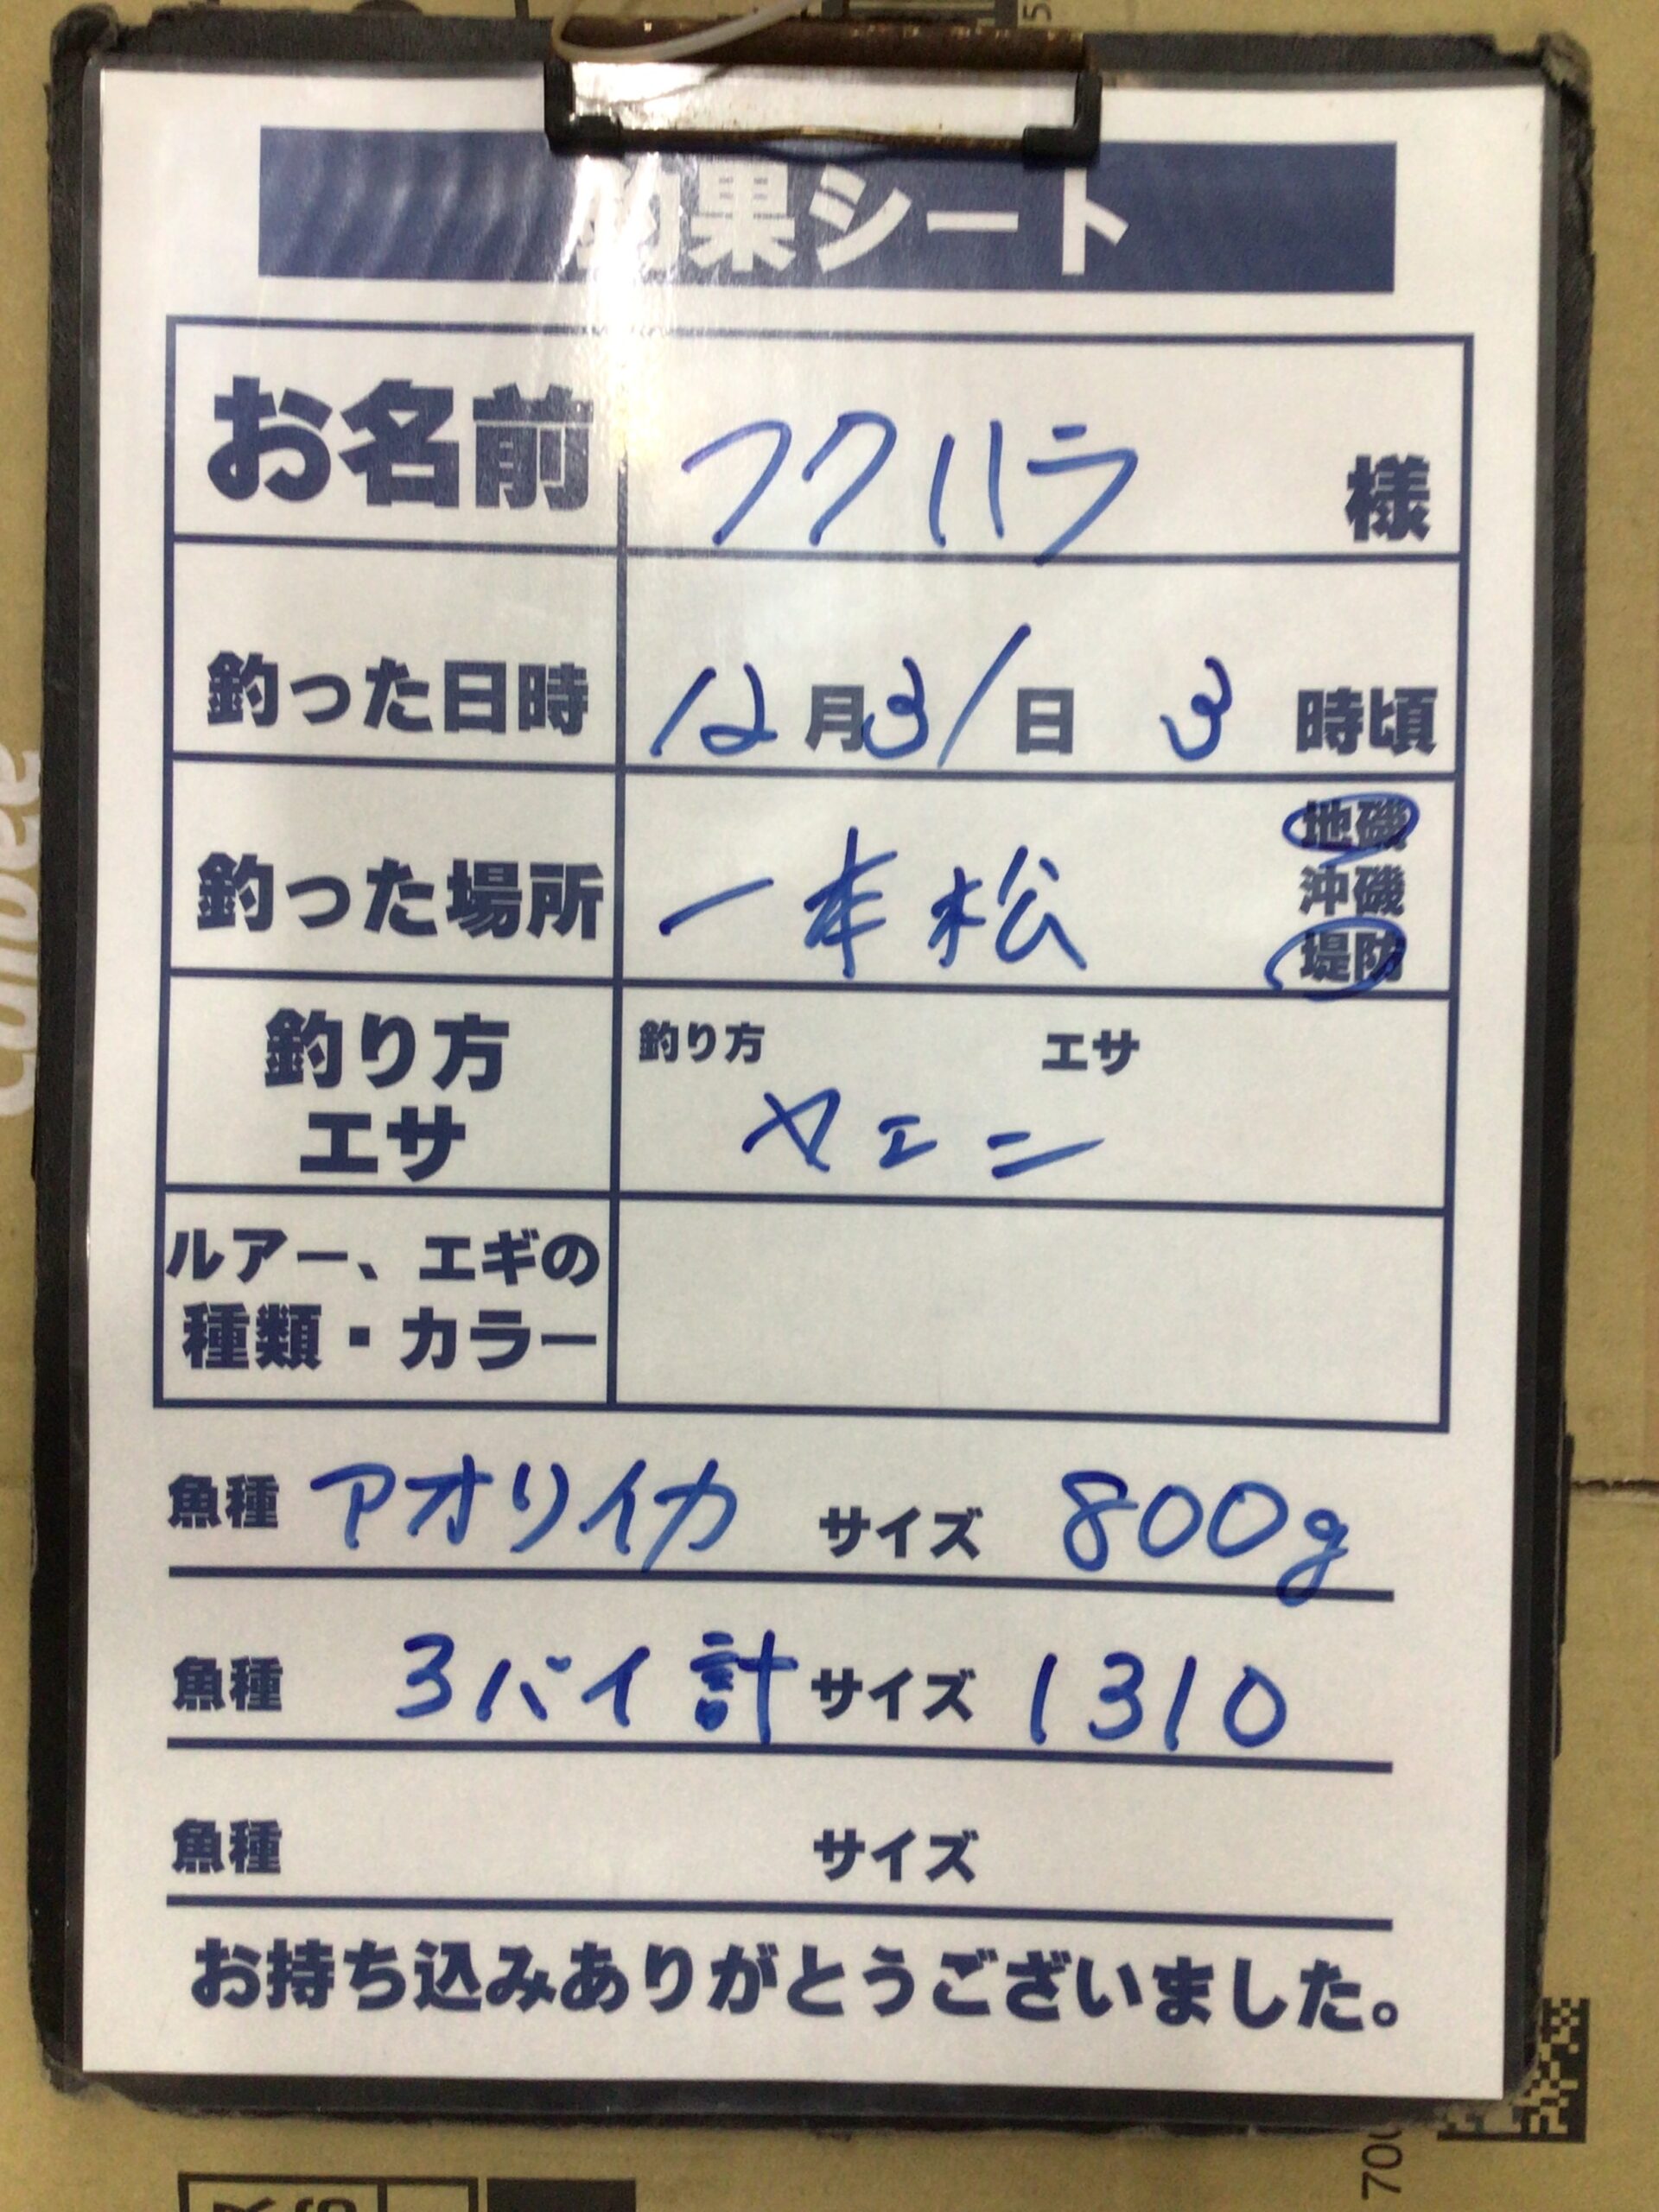 釣果シート
お名前 フクハラ 様
釣った日時 12月31日 3時頃
釣った場所 一本松 地磯 沖磯 堤防
釣り方 エサ
釣り方 エサ
ヤエン
ルアー、エギの
種類・カラー
魚種 アオリイカ サイズ 800g
魚種 3バイ計 サイズ 1310
魚種 サイズ
お持ち込みありがとうございました。